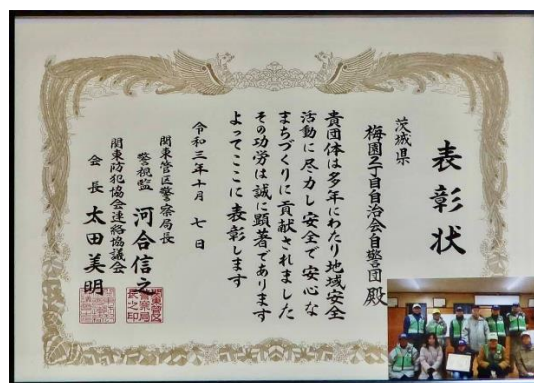 表彰状
茨城県
梅園2丁目自治会自警団 殿
貴団体は多年にわたり地域安全
活動に尽力し安全で安心な
まちづくりに貢献されました
その功労は誠に顕著であります
よってここに表彰します
令和三年十月七日
関東管区警察局長
警視監 河合信之
関東防犯協会連絡協議会
会長 太田美明
関東管区
警察局
長之印